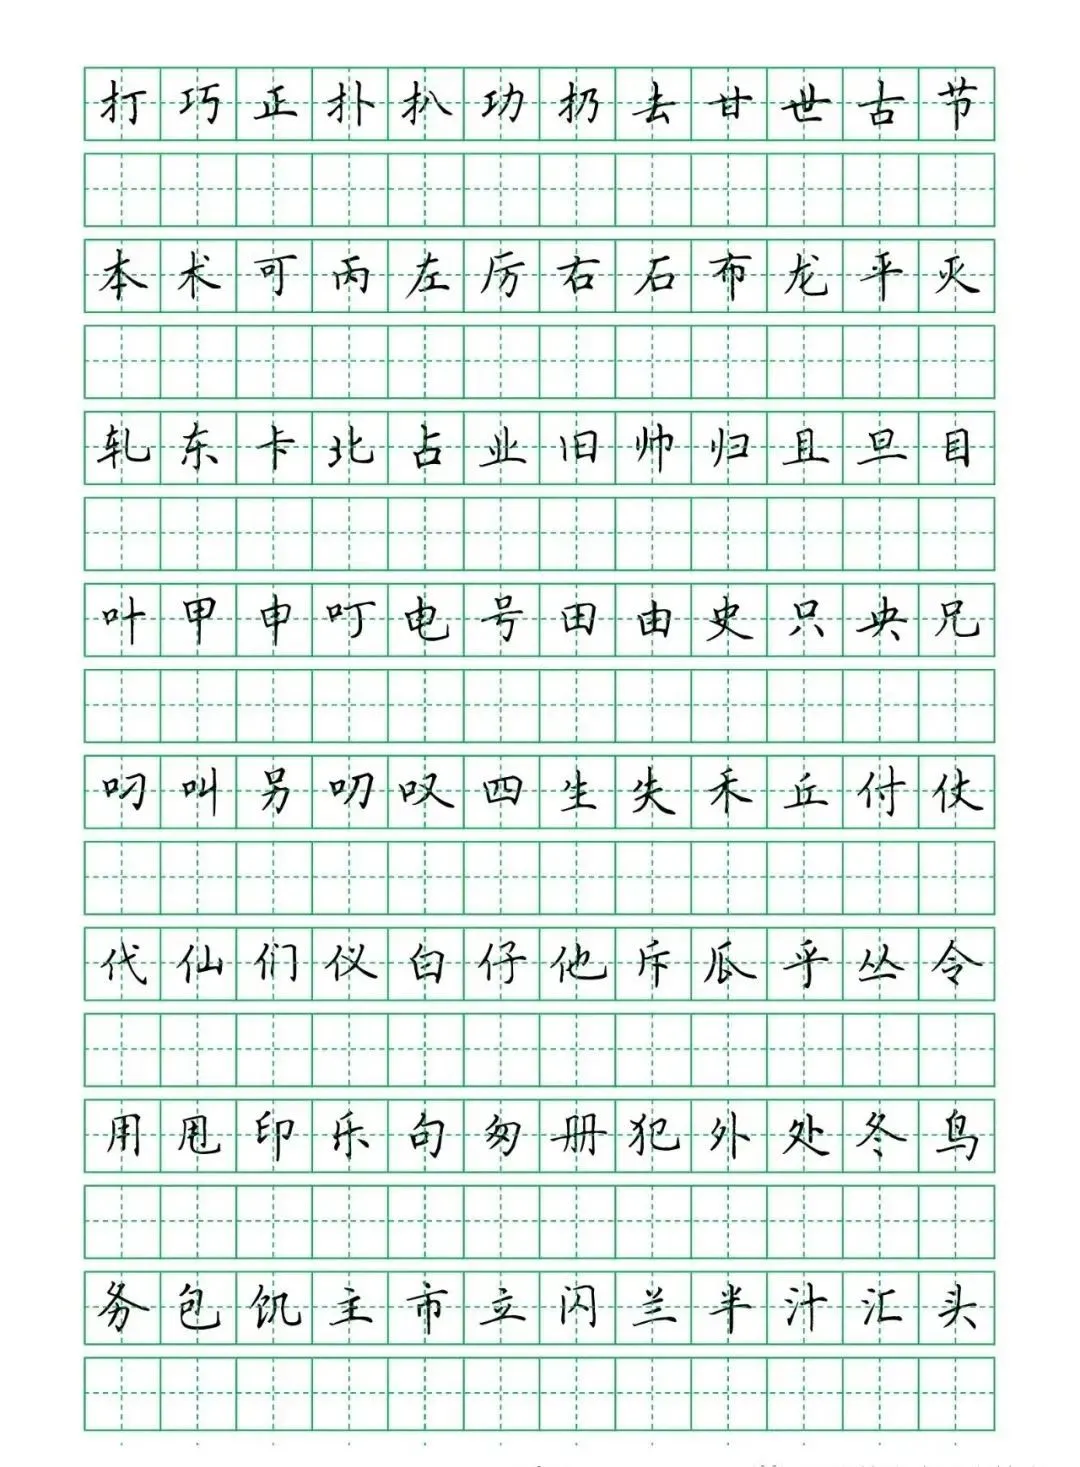 打巧正扑扒功扔去甘世古节
本术可丙左厉右石布龙平灭
轧东卡北占业旧帅归且旦目
叶甲申叮电号田由史只央兄
叼叫另叨叹四生失禾丘付仗
代仙们仪白仔他斥瓜乎丛令
用甩印乐句匆册犯外处冬鸟
务包饥主市立闪兰半汁汇头